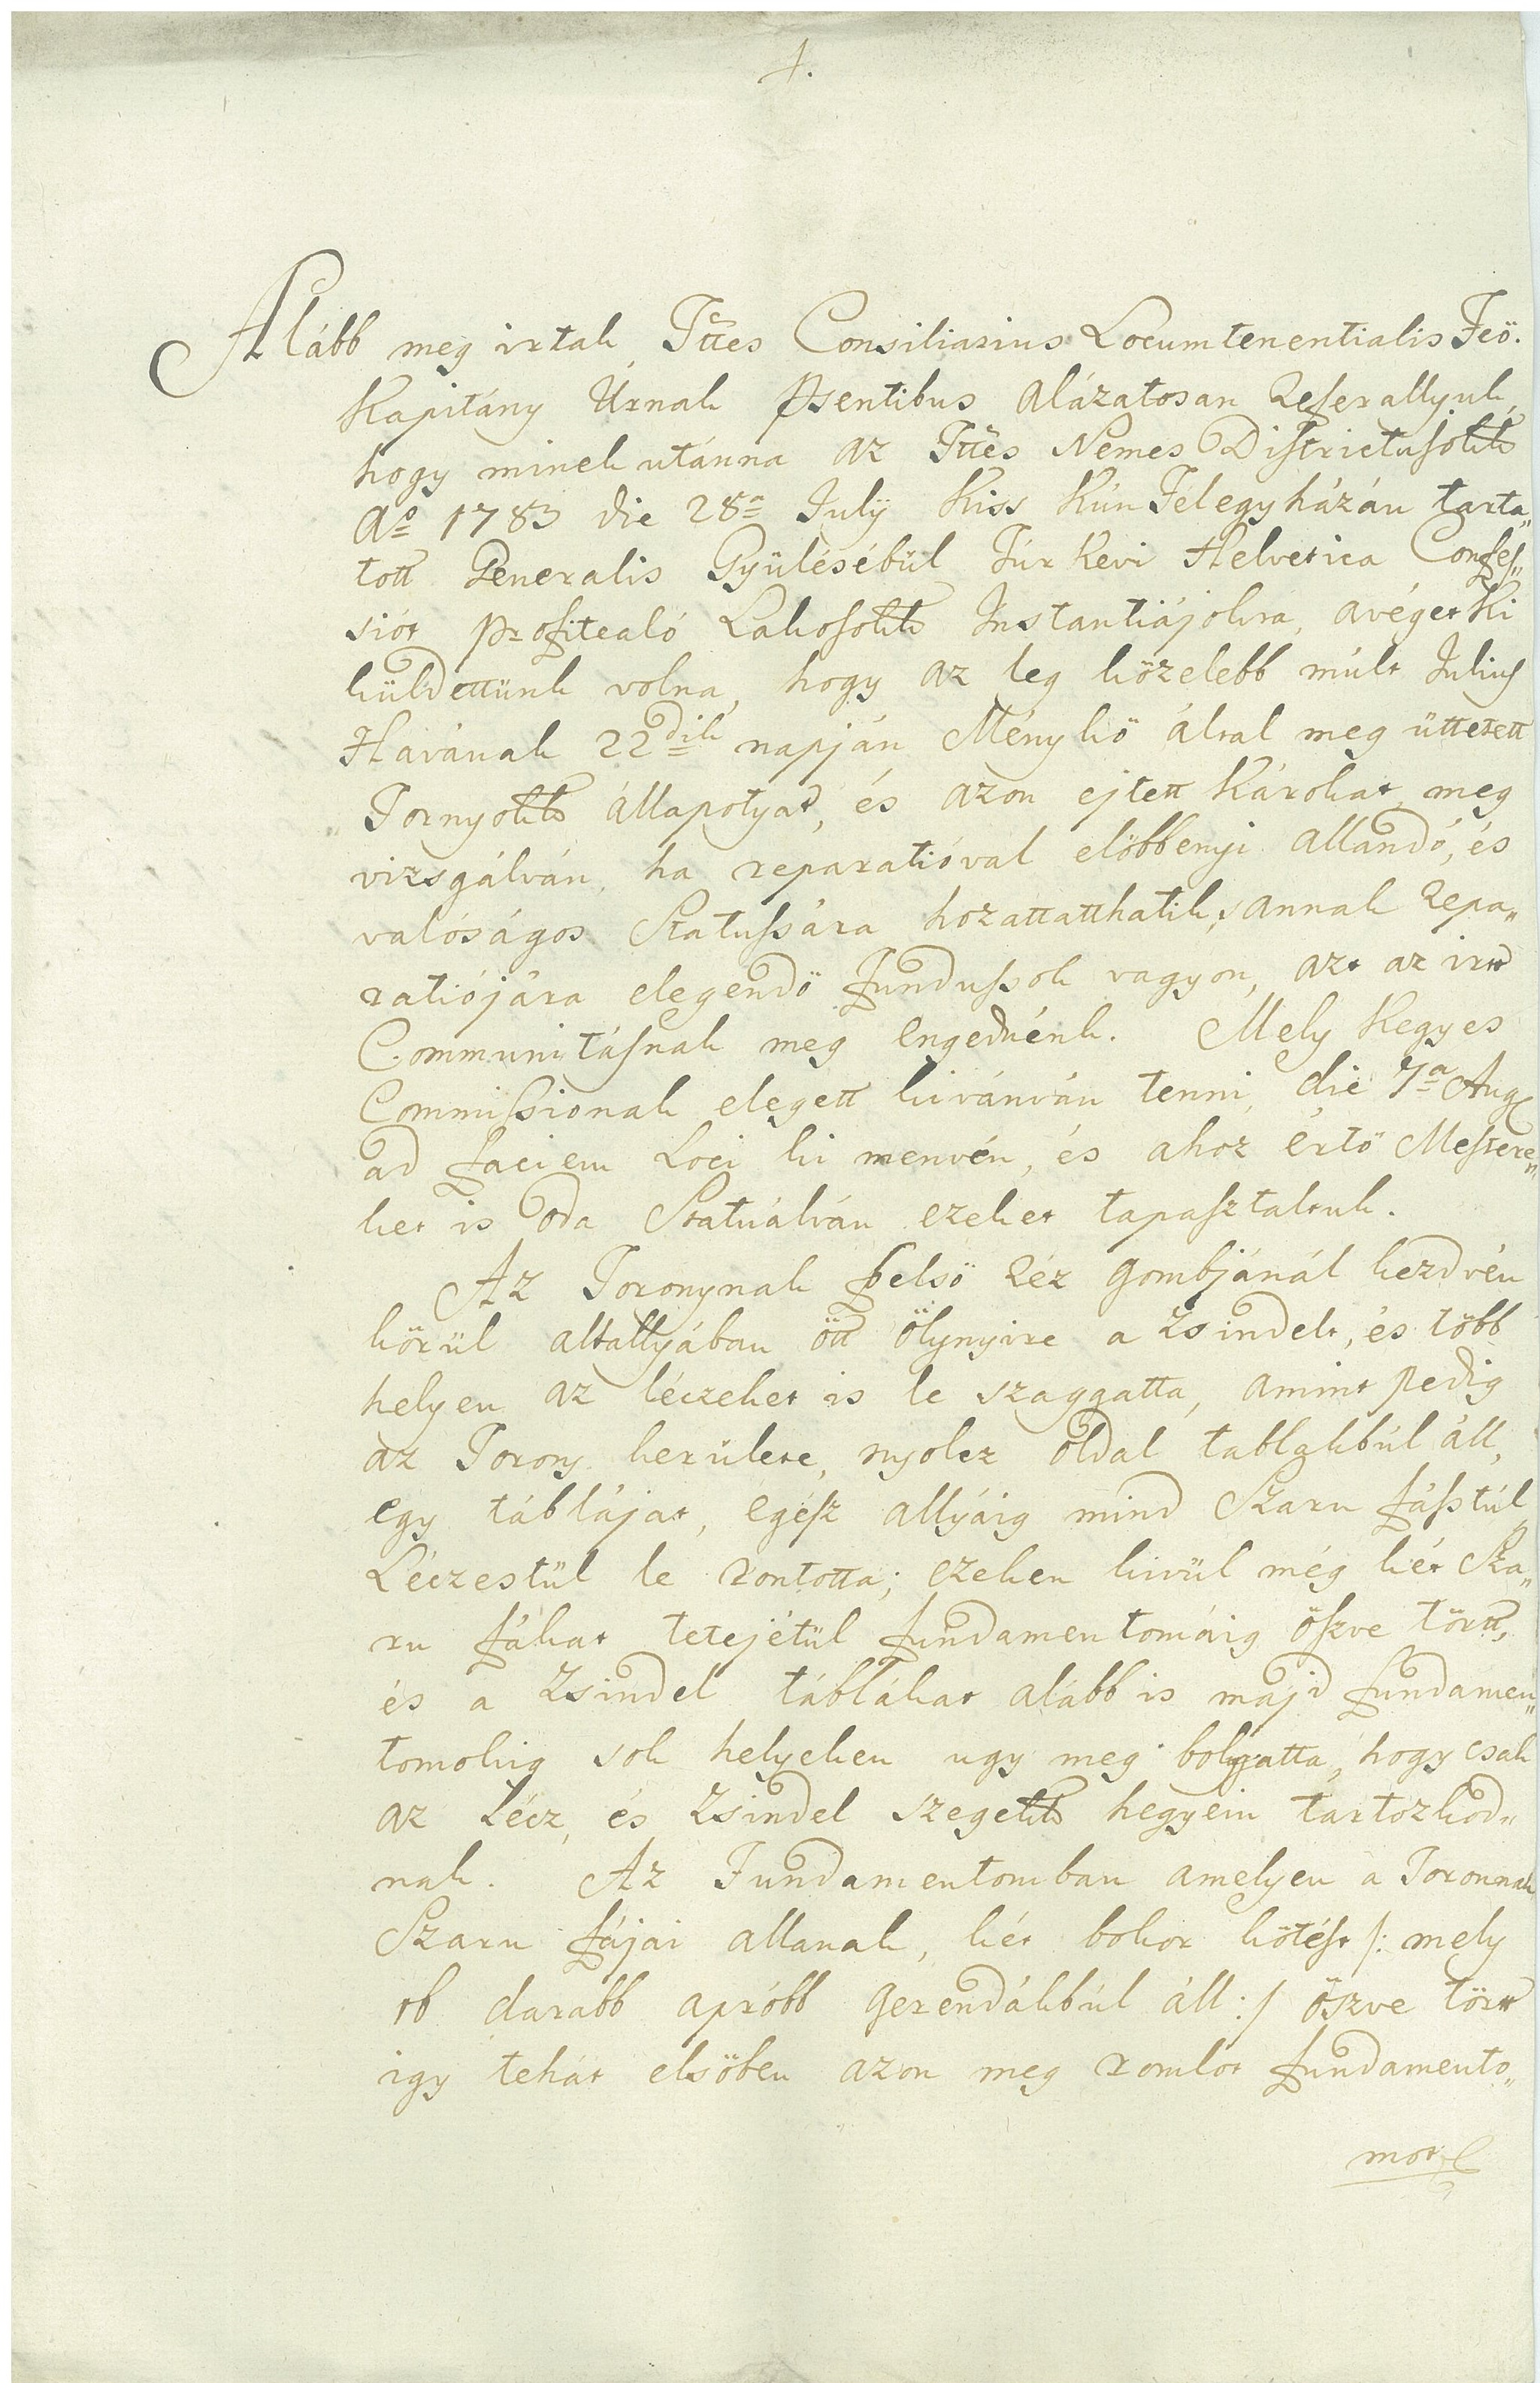 1.
Alább meg irtak, Tttes Consiliarius Locumtenentialis Feö.
Kapitány Úrnak Psentibus alázatosan Referallyuk,
hogy minek utánna az Tttes Nemes Districtusokk
Aº 1783 die 28ª Julÿ Kiss Kún Felegyházán tarta„
tott Generalis Gyülésébül Túr Kevi Helvetica Confes„
siót profiteáló Lakosokk Instantiájokra, avéget Ki
küldettünk volna, hogy az leg közelebb múlt Julius
Havának 22dik napján Ménykö által meg üttetett
Tornyokk állapotyát, és azon ejtett Károkat, meg
vizsgálván, ha reparatióval elöbbenyi allandó, és
valóságos Statussára hozattatthatik, s annak Repa„
ratiójára elegendö fundussok vagyon, azt az irtt
Communitásnak meg engednénk. Mely Kegyes
Commissionak elegett kivánván tenni, die 7ª Aug
ad faciem Loci ki menvén, és ahoz értö Mestere„
ket is oda Statuálván ezeket tapasztaltuk.
Az Toronynak felsö Réz gombjánál kezdvén
körül altallyában ött ölynyire a Zsindelt, és több
helyen az léczeket is le szaggatta, amint pedig
az Torony kerülete, nyolcz oldal tablakbúl áll,
egy táblájat, egész allyáig mind Szaru fástúl,
Léczestül le rontotta; ezeken kivül még két Sza„
ru fákat tetejétül fundamentomáig öszve törtt,
és a Zsindel táblákat alább is majd fundamen„
tomokig sok helyeken ugy meg bolygatta, hogy csak
az Lécz, és Zsindel szegekk hegyein tartozkod„
nak. Az Fundamentomban amelyen a Toronnak
Szaru fájai allanak, két bokor kötést /: mely
16 darabb apróbb gerendákbúl áll :/ öszve törtt
igy tehát elsöben azon meg romlot fundamento„
mot